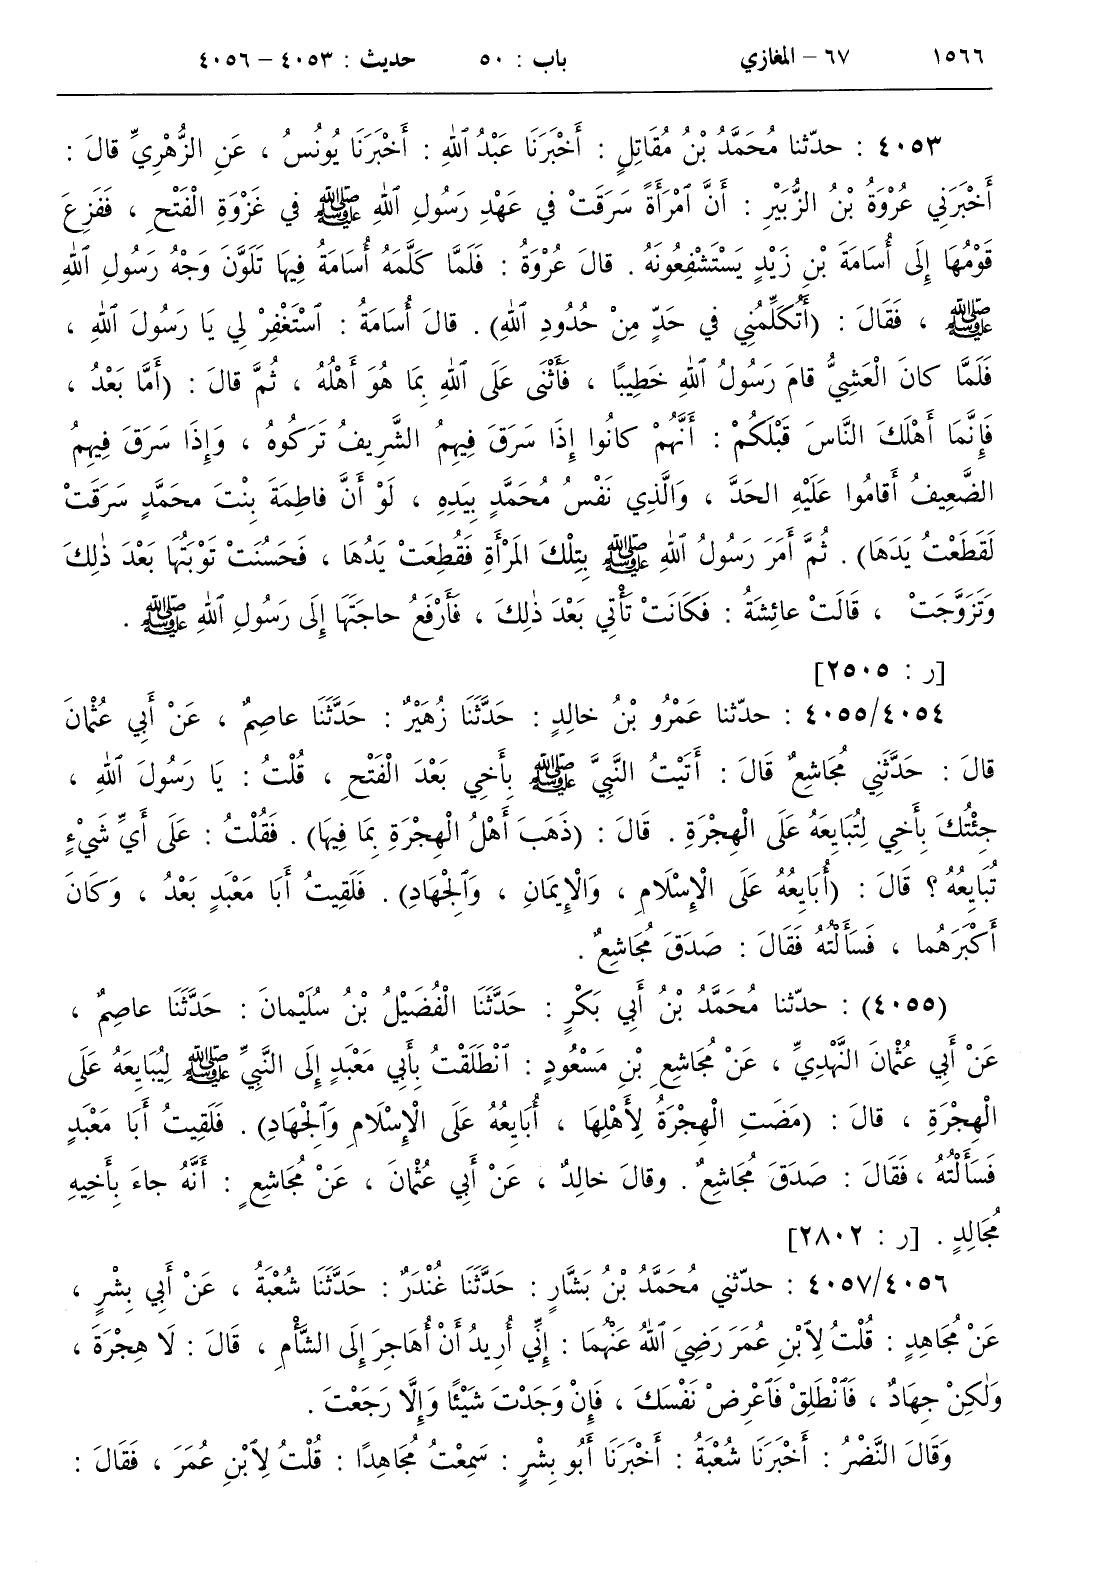 ١٥٦٦ ٦٧ – المغازي باب : ٥٠ حديث : ٤٠٥٣ – ٤٠٥٦
٤٠٥٣ : حدّثنا مُحَمَّدُ بْنُ مُقَاتِلٍ : أَخْبَرَنَا عَبْدُ ٱللهِ : أَخْبَرَنَا يُونُسُ ، عَنِ الزُّهْرِيِّ قالَ :
أَخْبَرَنِي عُرْوَةُ بْنُ الزُّبَيْرِ : أَنَّ ٱمْرَأَةً سَرَقَتْ في عَهْدِ رَسُولِ ٱللهِ ﷺ في غَزْوَةِ الْفَتْحِ ، فَفَزِعَ
قَوْمُهَا إِلَى أُسَامَةَ بْنِ زَيْدٍ يَسْتَشْفِعُونَهُ . قالَ عُرْوَةُ : فَلَمَّا كَلَّمَهُ أُسَامَةُ فِيهَا تَلَوَّنَ وَجْهُ رَسُولِ ٱللهِ
ﷺ ، فَقَالَ : (أَتُكَلِّمُنِي في حَدٍّ مِنْ حُدُودِ ٱللهِ) . قالَ أُسَامَةُ : ٱسْتَغْفِرْ لِي يَا رَسُولَ ٱللهِ ،
فَلَمَّا كانَ الْعَشِيُّ قامَ رَسُولُ ٱللهِ خَطِيبًا ، فَأَثْنَى عَلَى ٱللهِ بِمَا هُوَ أَهْلُهُ ، ثُمَّ قالَ : (أَمَّا بَعْدُ ،
فَإِنَّمَا أَهْلَكَ النَّاسَ قَبْلَكُمْ : أَنَّهُمْ كانُوا إِذَا سَرَقَ فِيهِمُ الشَّرِيفُ تَرَكُوهُ ، وَإِذَا سَرَقَ فِيهِمُ
الضَّعِيفُ أَقامُوا عَلَيْهِ الحَدَّ ، وَالَّذِي نَفْسُ مُحَمَّدٍ بِيَدِهِ ، لَوْ أَنَّ فاطِمَةَ بِنْتَ محَمَّدٍ سَرَقَتْ
لَقَطَعْتُ يَدَهَا) . ثُمَّ أَمَرَ رَسُولُ ٱللهِ ﷺ بِتِلْكَ المَرْأَةِ فَقُطِعَتْ يَدُهَا ، فَحَسُنَتْ تَوْبَتُهَا بَعْدَ ذٰلِكَ
وَتَزَوَّجَتْ ، قَالَتْ عائِشَةُ : فَكَانَتْ تَأْتِي بَعْدَ ذٰلِكَ ، فَأَرْفَعُ حاجَتَهَا إِلَى رَسُولِ ٱللهِ ﷺ .
[ر : ٢٥٠٥]
٤٠٥٥/٤٠٥٤ : حدّثنا عَمْرُو بْنُ خالِدٍ : حَدَّثَنَا زُهَيْرٌ : حَدَّثَنَا عاصِمٌ ، عَنْ أَبِي عُثْمانَ
قالَ : حَدَّثَنِي مُجَاشِعٌ قالَ : أَتَيْتُ النَّبِيَّ ﷺ بِأَخِي بَعْدَ الْفَتْحِ ، قُلْتُ : يَا رَسُولَ ٱللهِ ،
جِئْتُكَ بِأَخِي لِتُبَايِعَهُ عَلَى الْهِجْرَةِ . قالَ : (ذَهَبَ أَهْلُ الْهِجْرَةِ بِمَا فِيهَا) . فَقُلْتُ : عَلَى أَيِّ شَيْءٍ
تُبَايِعُهُ ؟ قالَ : (أُبَايِعُهُ عَلَى الْإِسْلَامِ ، وَالْإِيمَانِ ، وَٱلْجِهَادِ) . فَلَقِيتُ أَبَا مَعْبَدٍ بَعْدُ ، وَكَانَ
أَكْبَرَهُما ، فَسَأَلْتُهُ فَقَالَ : صَدَقَ مُجَاشِعٌ .
(٤٠٥٥) : حدّثنا مُحَمَّدُ بْنُ أَبِي بَكْرٍ : حَدَّثَنَا الْفُضَيْلُ بْنُ سُلَيْمانَ : حَدَّثَنَا عاصِمٌ ،
عَنْ أَبِي عُثْمانَ النَّهْدِيِّ ، عَنْ مُجَاشِعِ بْنِ مَسْعُودٍ : ٱنْطَلَقْتُ بِأَبِي مَعْبَدٍ إِلَى النَّبِيِّ ﷺ لِيُبَايِعَهُ عَلَى
الْهِجْرَةِ ، قالَ : (مَضَتِ الْهِجْرَةُ لِأَهْلِهَا ، أُبَايِعُهُ عَلَى الْإِسْلَامِ وَٱلْجِهَادِ) . فَلَقِيتُ أَبَا مَعْبَدٍ
فَسَأَلْتُهُ ، فَقَالَ : صَدَقَ مُجَاشِعٌ . وقالَ خالِدٌ ، عَنْ أَبِي عُثْمانَ ، عَنْ مُجَاشِعٍ : أَنَّهُ جاءَ بِأَخِيهِ
مُجَالِدٍ . [ر : ٢٨٠٢]
٤٠٥٧/٤٠٥٦ : حدّثني مُحَمَّدُ بْنُ بَشَّارٍ : حَدَّثَنَا غُنْدَرٌ : حَدَّثَنَا شُعْبَةُ ، عَنْ أَبِي بِشْرٍ ،
عَنْ مُجَاهِدٍ : قُلْتُ لِٱبْنِ عُمَرَ رَضِيَ ٱللهُ عَنْهُمَا : إِنِّي أُرِيدُ أَنْ أُهَاجِرَ إِلَى الشَّأْمِ ، قَالَ : لَا هِجْرَةَ ،
وَلٰكِنْ جِهَادٌ ، فَٱنْطَلِقْ فَٱعْرِضْ نَفْسَكَ ، فَإِنْ وَجَدْتَ شَيْئًا وَإِلَّا رَجَعْتَ .
وَقَالَ النَّضْرُ : أَخْبَرَنَا شُعْبَةُ : أَخْبَرَنَا أَبُو بِشْرٍ : سَمِعْتُ مُجَاهِدًا : قُلْتُ لِٱبْنِ عُمَرَ ، فَقَالَ :